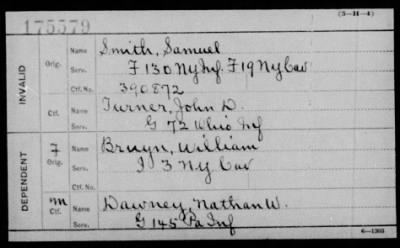 (3—14—4)
175579
Name Smith, Samuel
INVALID
Orig. Serv. F 130 NY Inf. F 19 N Y Cav
Ctf. No. 390872
Name Turner, John D.
Ctf. Serv. G 72 Ohio Inf
DEPENDENT
7 Name Bruyn, William
Orig. Serv. I 3 N Y Cav
Ctf. No.
m Name Dawney, Nathan W.
Ctf. Serv. G 145 Pa Inf
6—1303